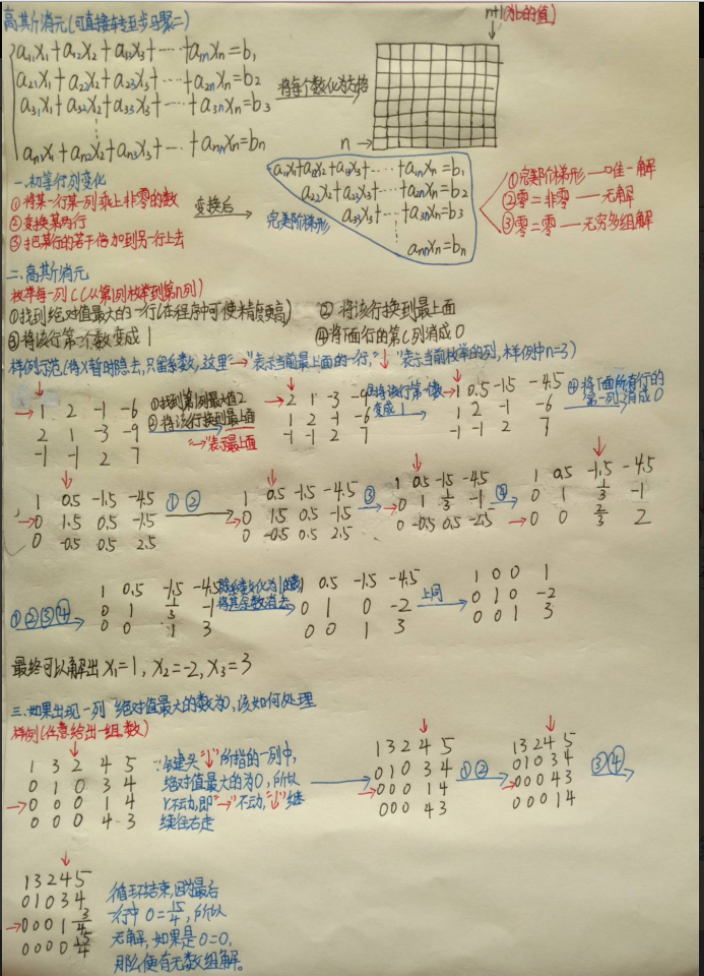 高斯消元(可直接转至步骤二)
n+1(为b的值)
a₁₁x₁+a₁₂x₂+a₁₃x₃+ ··· +a₁ₙxₙ=b₁
a₂₁x₁+a₂₂x₂+a₂₃x₃+ ··· +a₂ₙxₙ=b₂
a₃₁x₁+a₃₂x₂+a₃₃x₃+ ··· +a₃ₙxₙ=b₃
⋮
aₙ₁x₁+aₙ₂x₂+aₙ₃x₃+ ··· +aₙₙxₙ=bₙ
将每个数化为方格
n →
一.初等行列变化
①将某一行某一列乘上非零的数
②变换某两行
③把某行的若干倍加到另一行上去
变换后
完美阶梯形
a₁₁x₁+a₁₂x₂+a₁₃x₃+ ··· +a₁ₙxₙ=b₁
a₂₂x₂+a₂₃x₃+ ··· +a₂ₙxₙ=b₂
a₃₃x₃+ ··· +a₃ₙxₙ=b₃
⋮
aₙₙxₙ=bₙ
①完美阶梯形——唯一解
②零=非零——无解
③零=零——无穷多组解
二.高斯消元
枚举每一列C(从第1列枚举到第n列)
①找到绝对值最大的一行(在程序中可使精度更高) ②将该行换到最上面
③将该行第一个数变成1 ④将下面行的第C列消成0
样例示范(将X暂时隐去,只留系数,这里"→"表示当前最上面的一行,"↓"表示当前枚举的列,样例中n=3)
→1 2 -1 -6
2 1 -3 -9
-1 -1 2 7
①找到第1列最大值2
②将该行换到最上面
"→"表示最上面
→2 1 -3 -9
1 2 -1 -6
-1 -1 2 7
③将该行第一个数
变成1
→1 0.5 -1.5 -4.5
1 2 -1 -6
-1 -1 2 7
④将下面所有行的
第一列消成0
1 0.5 -1.5 -4.5
→0 1.5 0.5 -1.5
0 -0.5 0.5 2.5
①②
1 0.5 -1.5 -4.5
→0 1.5 0.5 -1.5
0 -0.5 0.5 2.5
③
1 0.5 -1.5 -4.5
→0 1 1/3 -1
0 -0.5 0.5 -2.5
④
1 0.5 -1.5 -4.5
0 1 1/3 -1
→0 0 2/3 2
①②③④
1 0.5 -1.5 -4.5
0 1 1/3 -1
0 0 1 3
将其余数消去
1 0.5 -1.5 -4.5
0 1 0 -2
0 0 1 3
上同
1 0 0 1
0 1 0 -2
0 0 1 3
最终可以解出X₁=1, X₂=-2, X₃=3
三.如果出现一列 绝对值最大的数为0,该如何处理
样例(任意给出一组数)
1 3 2 4 5
0 1 0 3 4
→0 0 0 1 4
0 0 0 4 3
∵红箭头"↓"所指的一列中,
绝对值最大的为0,所以
r不动,即"→"不动,"↓"继
续往右走
1 3 2 4 5
0 1 0 3 4
→0 0 0 1 4
0 0 0 4 3
①②
1 3 2 4 5
0 1 0 3 4
→0 0 0 4 3
0 0 0 1 4
③④
1 3 2 4 5
0 1 0 3 4
→0 0 0 1 3/4
0 0 0 0 15/4
循环结束,因为最后
一行中 0=15/4,所以
无解,如果是0=0,
那么便有无数组解。